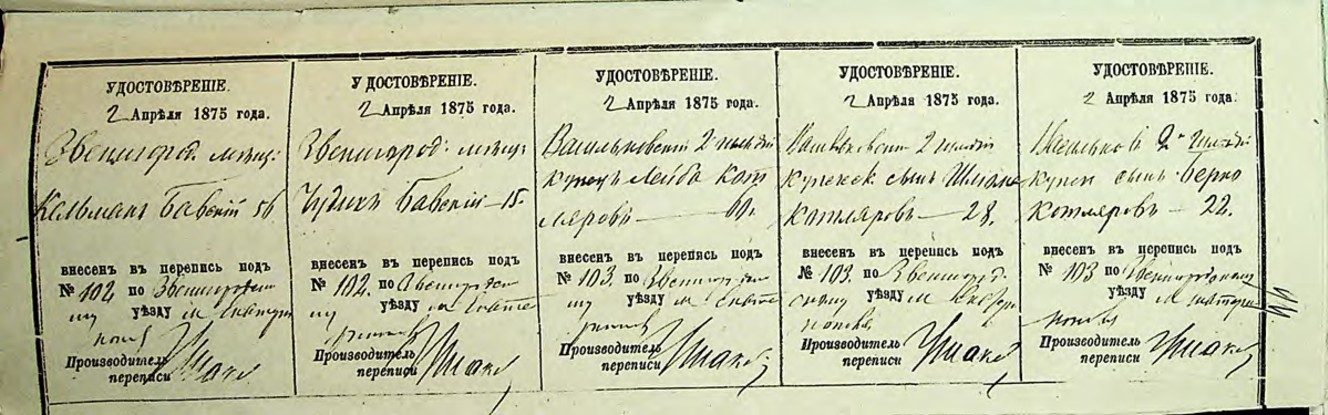 УДОСТОВѢРЕНІЕ.
2 Апрѣля 1875 года.
Звенигород. мѣщ:
Кальманъ Бавскій 56
внесенъ въ перепись подъ
№ 102 по Звенигородско
му уѣзду м Екатери
нопол
Производитель
переписи
У ДОСТОВѢРЕНІЕ.
2 Апрѣля 1875 года.
Звенигород: мѣщ:
Бавскій — 15.
внесенъ въ перепись подъ
№ 102. по Звенигородско
му уѣзду м Екате
ринопол
Производитель
переписи
УДОСТОВѢРЕНІЕ.
2 Апрѣля 1875 года.
Васильковскій 2 гильдіи
купецъ Лейба Кот
ляровъ — 60.
внесенъ въ перепись подъ
№ 103. по Звенигородско
му уѣзду м Екате
ринопол
Производитель
переписи
УДОСТОВѢРЕНІЕ.
2 Апрѣля 1875 года.
Васильковскій 2 гильдіи
купеческ. сынъ Шлома
Котляровъ — 28.
внесенъ въ перепись подъ
№ 103. по Звенигород
скому уѣзду м Екатери
нопол
Производитель
переписи
УДОСТОВѢРЕНІЕ.
2 Апрѣля 1875 года.
Васильков 2й гильдіи
купеч сынъ Берко
Котляровъ — 22.
внесенъ въ перепись подъ
№ 103 по Звенигородскому
уѣзду м Екатери
нопол
Производитель
переписи